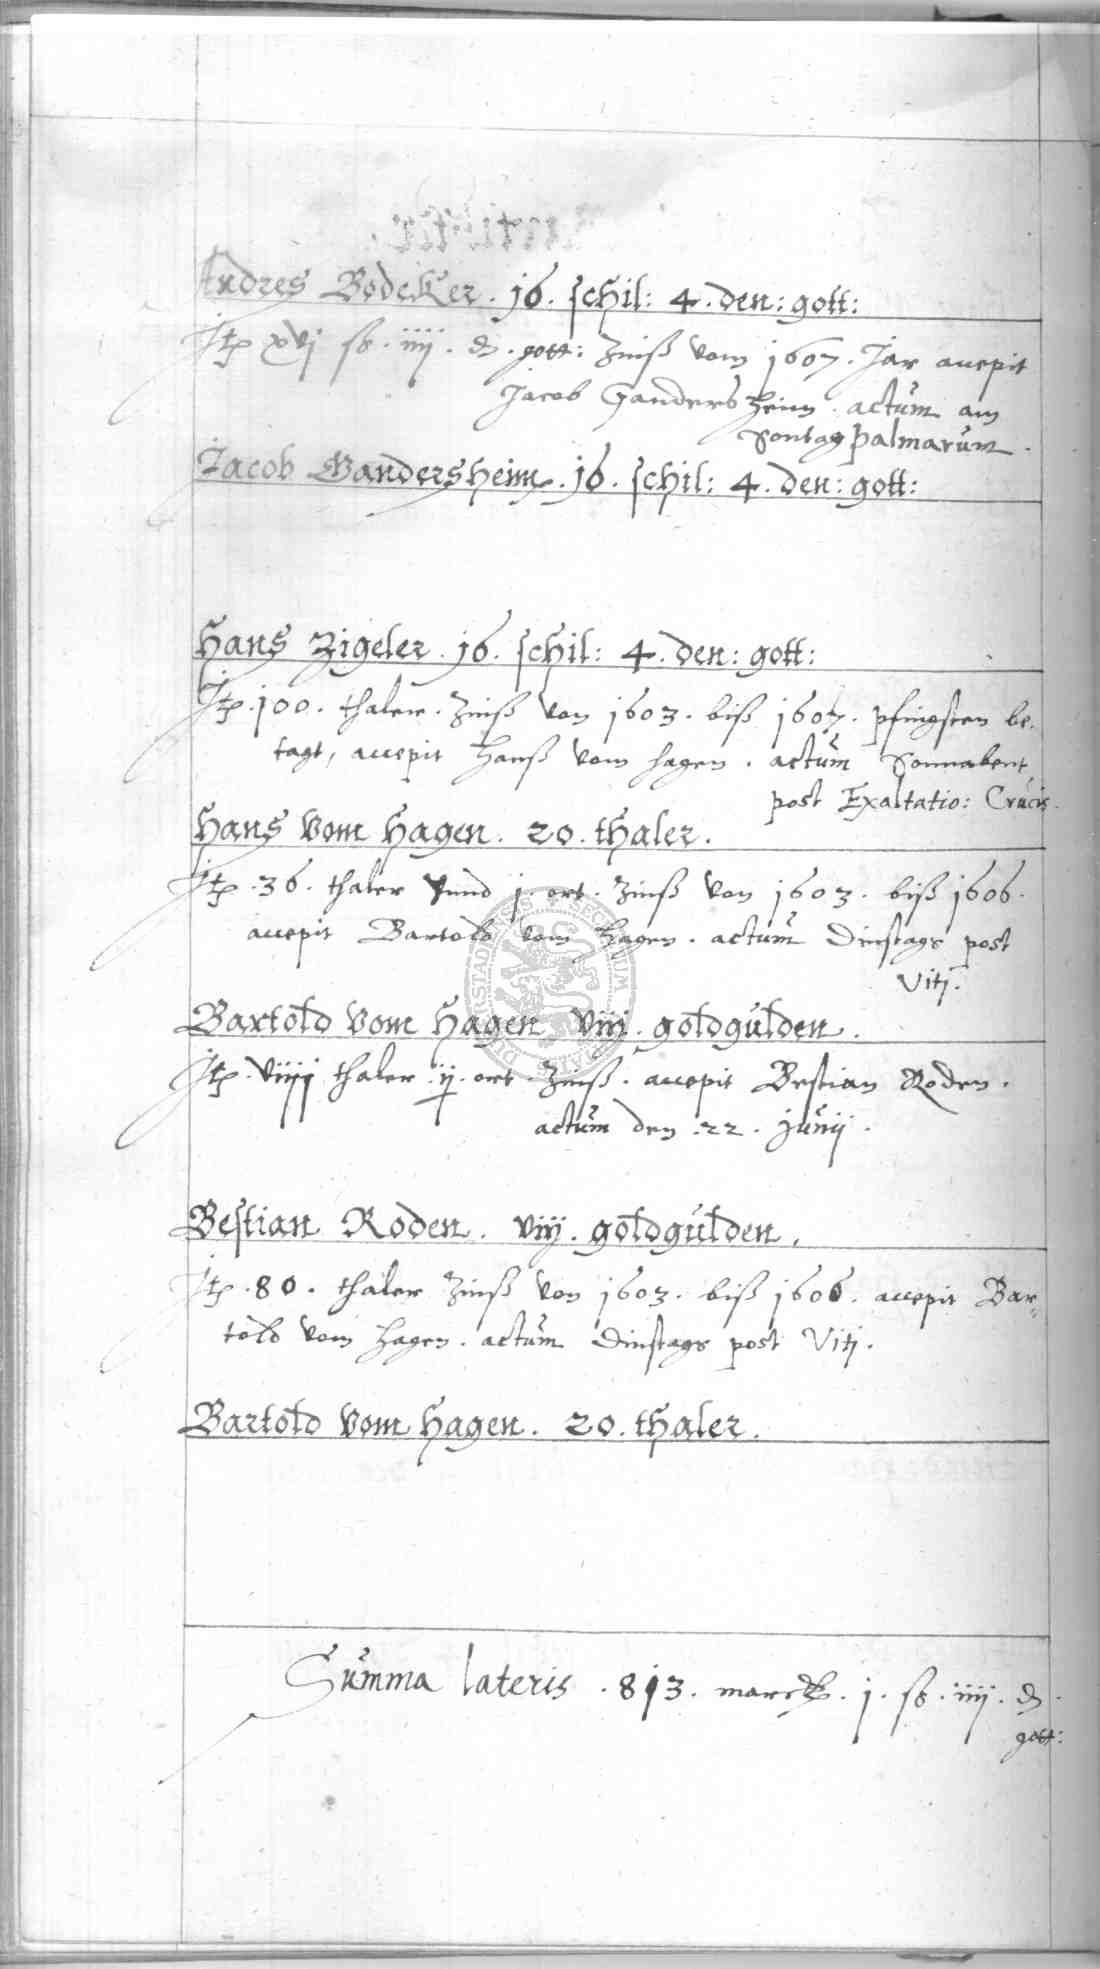 Andres Bodeker . 16 . schil: 4 . den: gott:
Itp xvj sß . iiij . d . gott: Zinß vom 1607 . Jar accepit
Jacob Gandersheim . actum am
Sontag Palmarum .
Jacob Gandersheim . 16 . schil: 4 . den: gott:
Hans Zigeler . 16 . schil: 4 . den: gott:
Itp . 100 . thaler . Zinß von 1603 . biß 1607 . pfingsten be-
tagt, accepit Hanß vom Hagen . actum Sonnabent
post Exaltatio: Crucis .
Hans vom Hagen . 20 . thaler .
Itp . 36 . thaler vnnd j . ort . Zinß von 1603 . biß 1606 .
accepit Bartold vom Hagen . actum Dinstags post
Viti .
Bartold vom Hagen viij . goldgulden .
Itp . viiij thaler . ij . ort . Zinß . accepit Bestian Roden .
actum den . 22 . Junij .
Bestian Roden . viij . goldgulden .
Itp . 80 . thaler Zinß von 1603 . biß 1606 . accepit Bar-
told vom Hagen . actum Dinstags post Viti .
Bartold vom Hagen . 20 . thaler .
Summa lateris . 813 . marck . j . sß . iiij . d .
gott: